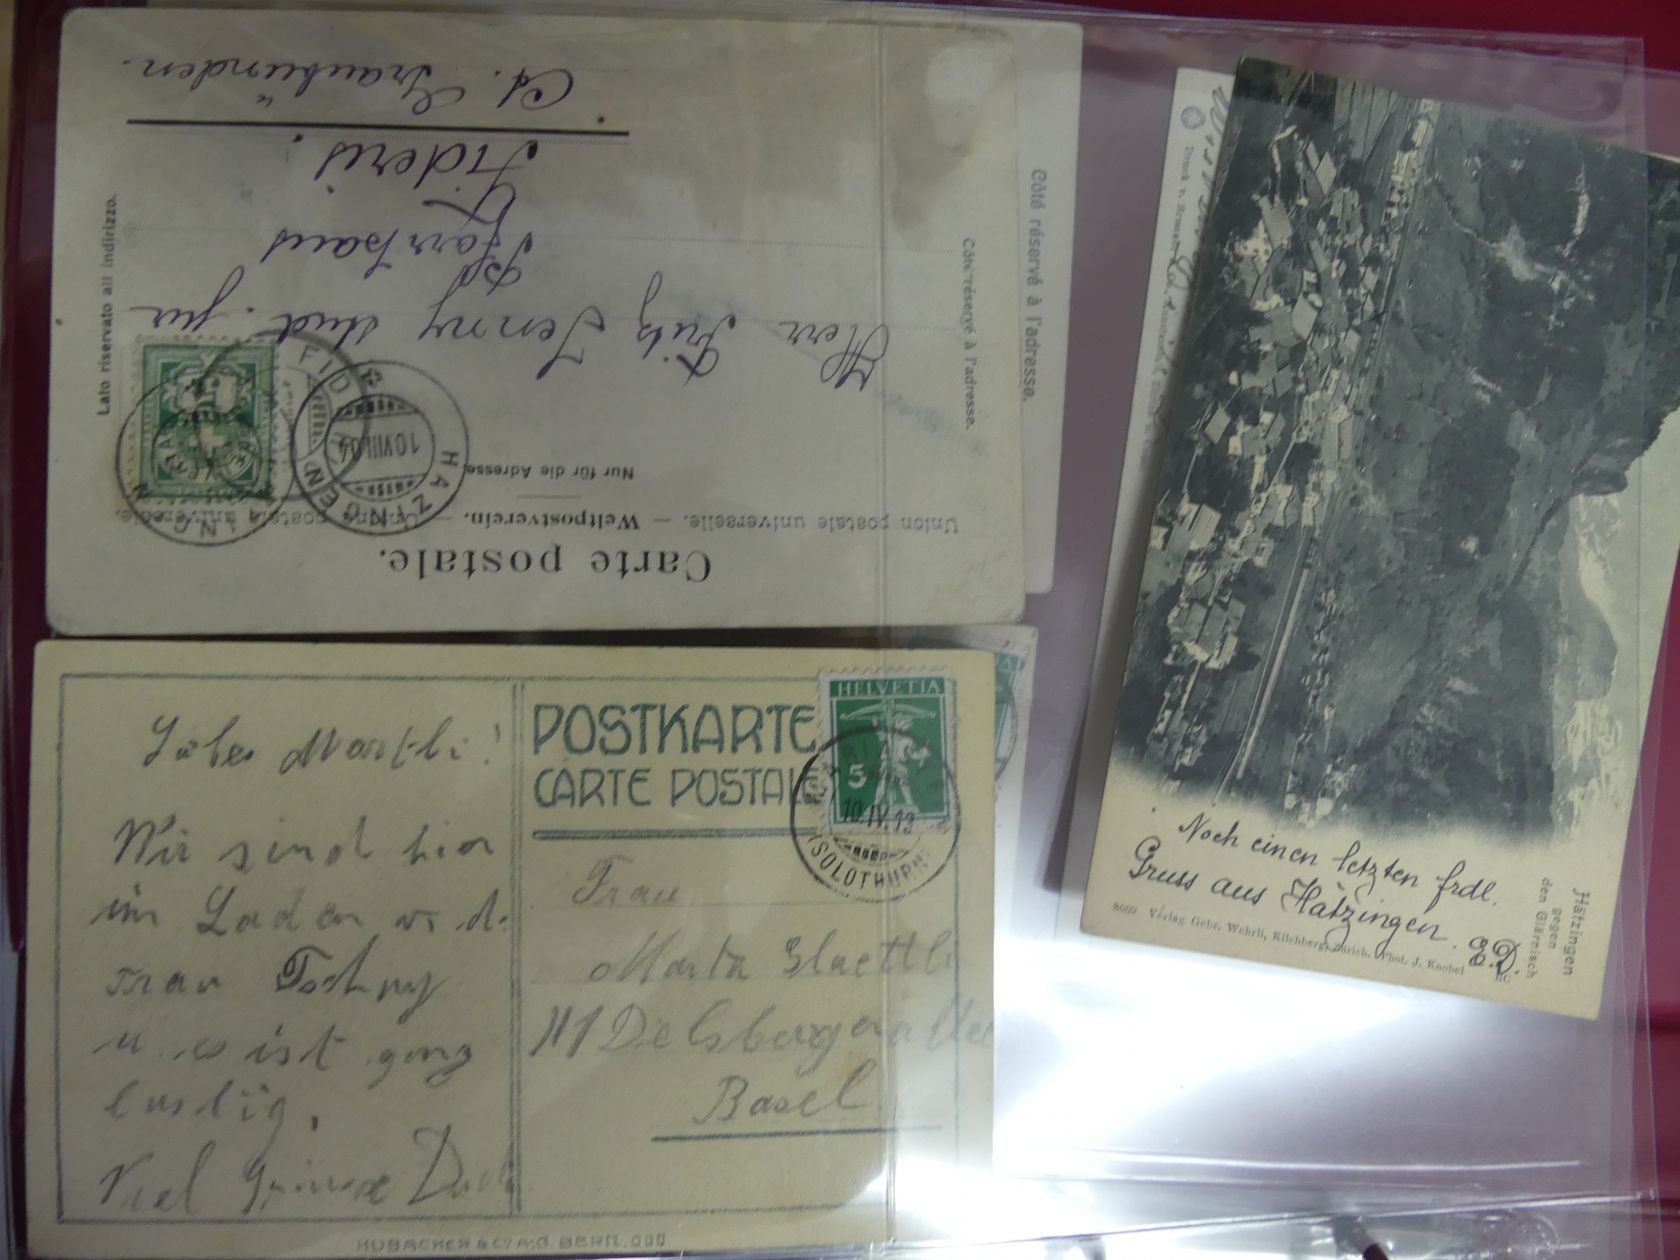 Carte postale.
Union postale universelle. — Weltpostverein. — Unione postale universale.
Nur für die Adresse.
Côté réservé à l'adresse.
Lato riservato all indirizzo.
HÄTZINGEN
10.VIII.04
FID
Herr Fritz Jenny stud. jur
Pfarrhaus
Fideris.
Ct. Graubünden.
Côté réservé à l'adresse.
POSTKARTE
CARTE POSTALE
HELVETIA
5
10.IV.13
(SOLOTHURN)
Liebes Martheli!
Wir sind hier
im Laden v. d.
Frau
u. es ist ganz
lustig.
Viel Grüsse
Frau
Marta Glaettli
111 Delsbergerallee
Basel
HUBACHER & Co A.G. BERN.
Druck v.
Noch einen letzten frdl.
Gruss aus Hätzingen. E.D.
8609 Verlag Gebr. Wehrli, Kilchberg, Zürich. Phot. J. Knobel
Hätzingen
gegen
den Glärnisch